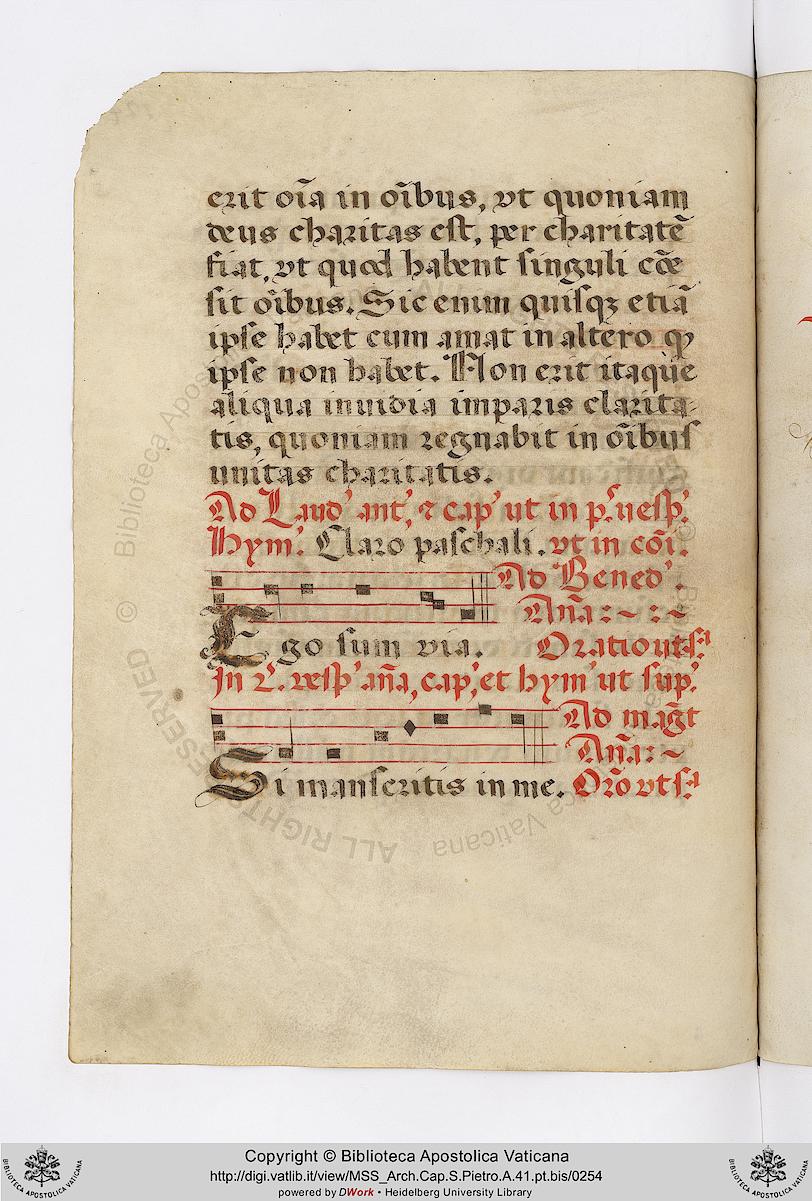 erit oīa in oībus, vt quoniam
deus charitas est, per charitatē
fiat, vt quod habent singuli cōe
sit oībus. Sic enim quisqꝫ etiā
ipse habet cum amat in altero ꝙ
ipse non habet. Non erit itaque
aliqua inuidia imparis clarita-
tis, quoniam regnabit in oībus
unitas charitatis.
Ad Laud' ant', ⁊ cap' ut in p.ͬ uesp'.
Hym'. Claro paschali. vt in cōi.
Ad Bened'.
Aña:~:~
Ego sum via. Oratio ut sᵃ
In 2.ͥ vesp' aña, cap', et hym' ut sup'.
Ad magt̄
Aña:~
Si manseritis in me. Orō vt sᵃ
© Biblioteca Apostolica Vaticana
ALL RIGHTS RESERVED
Copyright © Biblioteca Apostolica Vaticana
http://digi.vatlib.it/view/MSS_Arch.Cap.S.Pietro.A.41.pt.bis/0254
powered by DWork • Heidelberg University Library